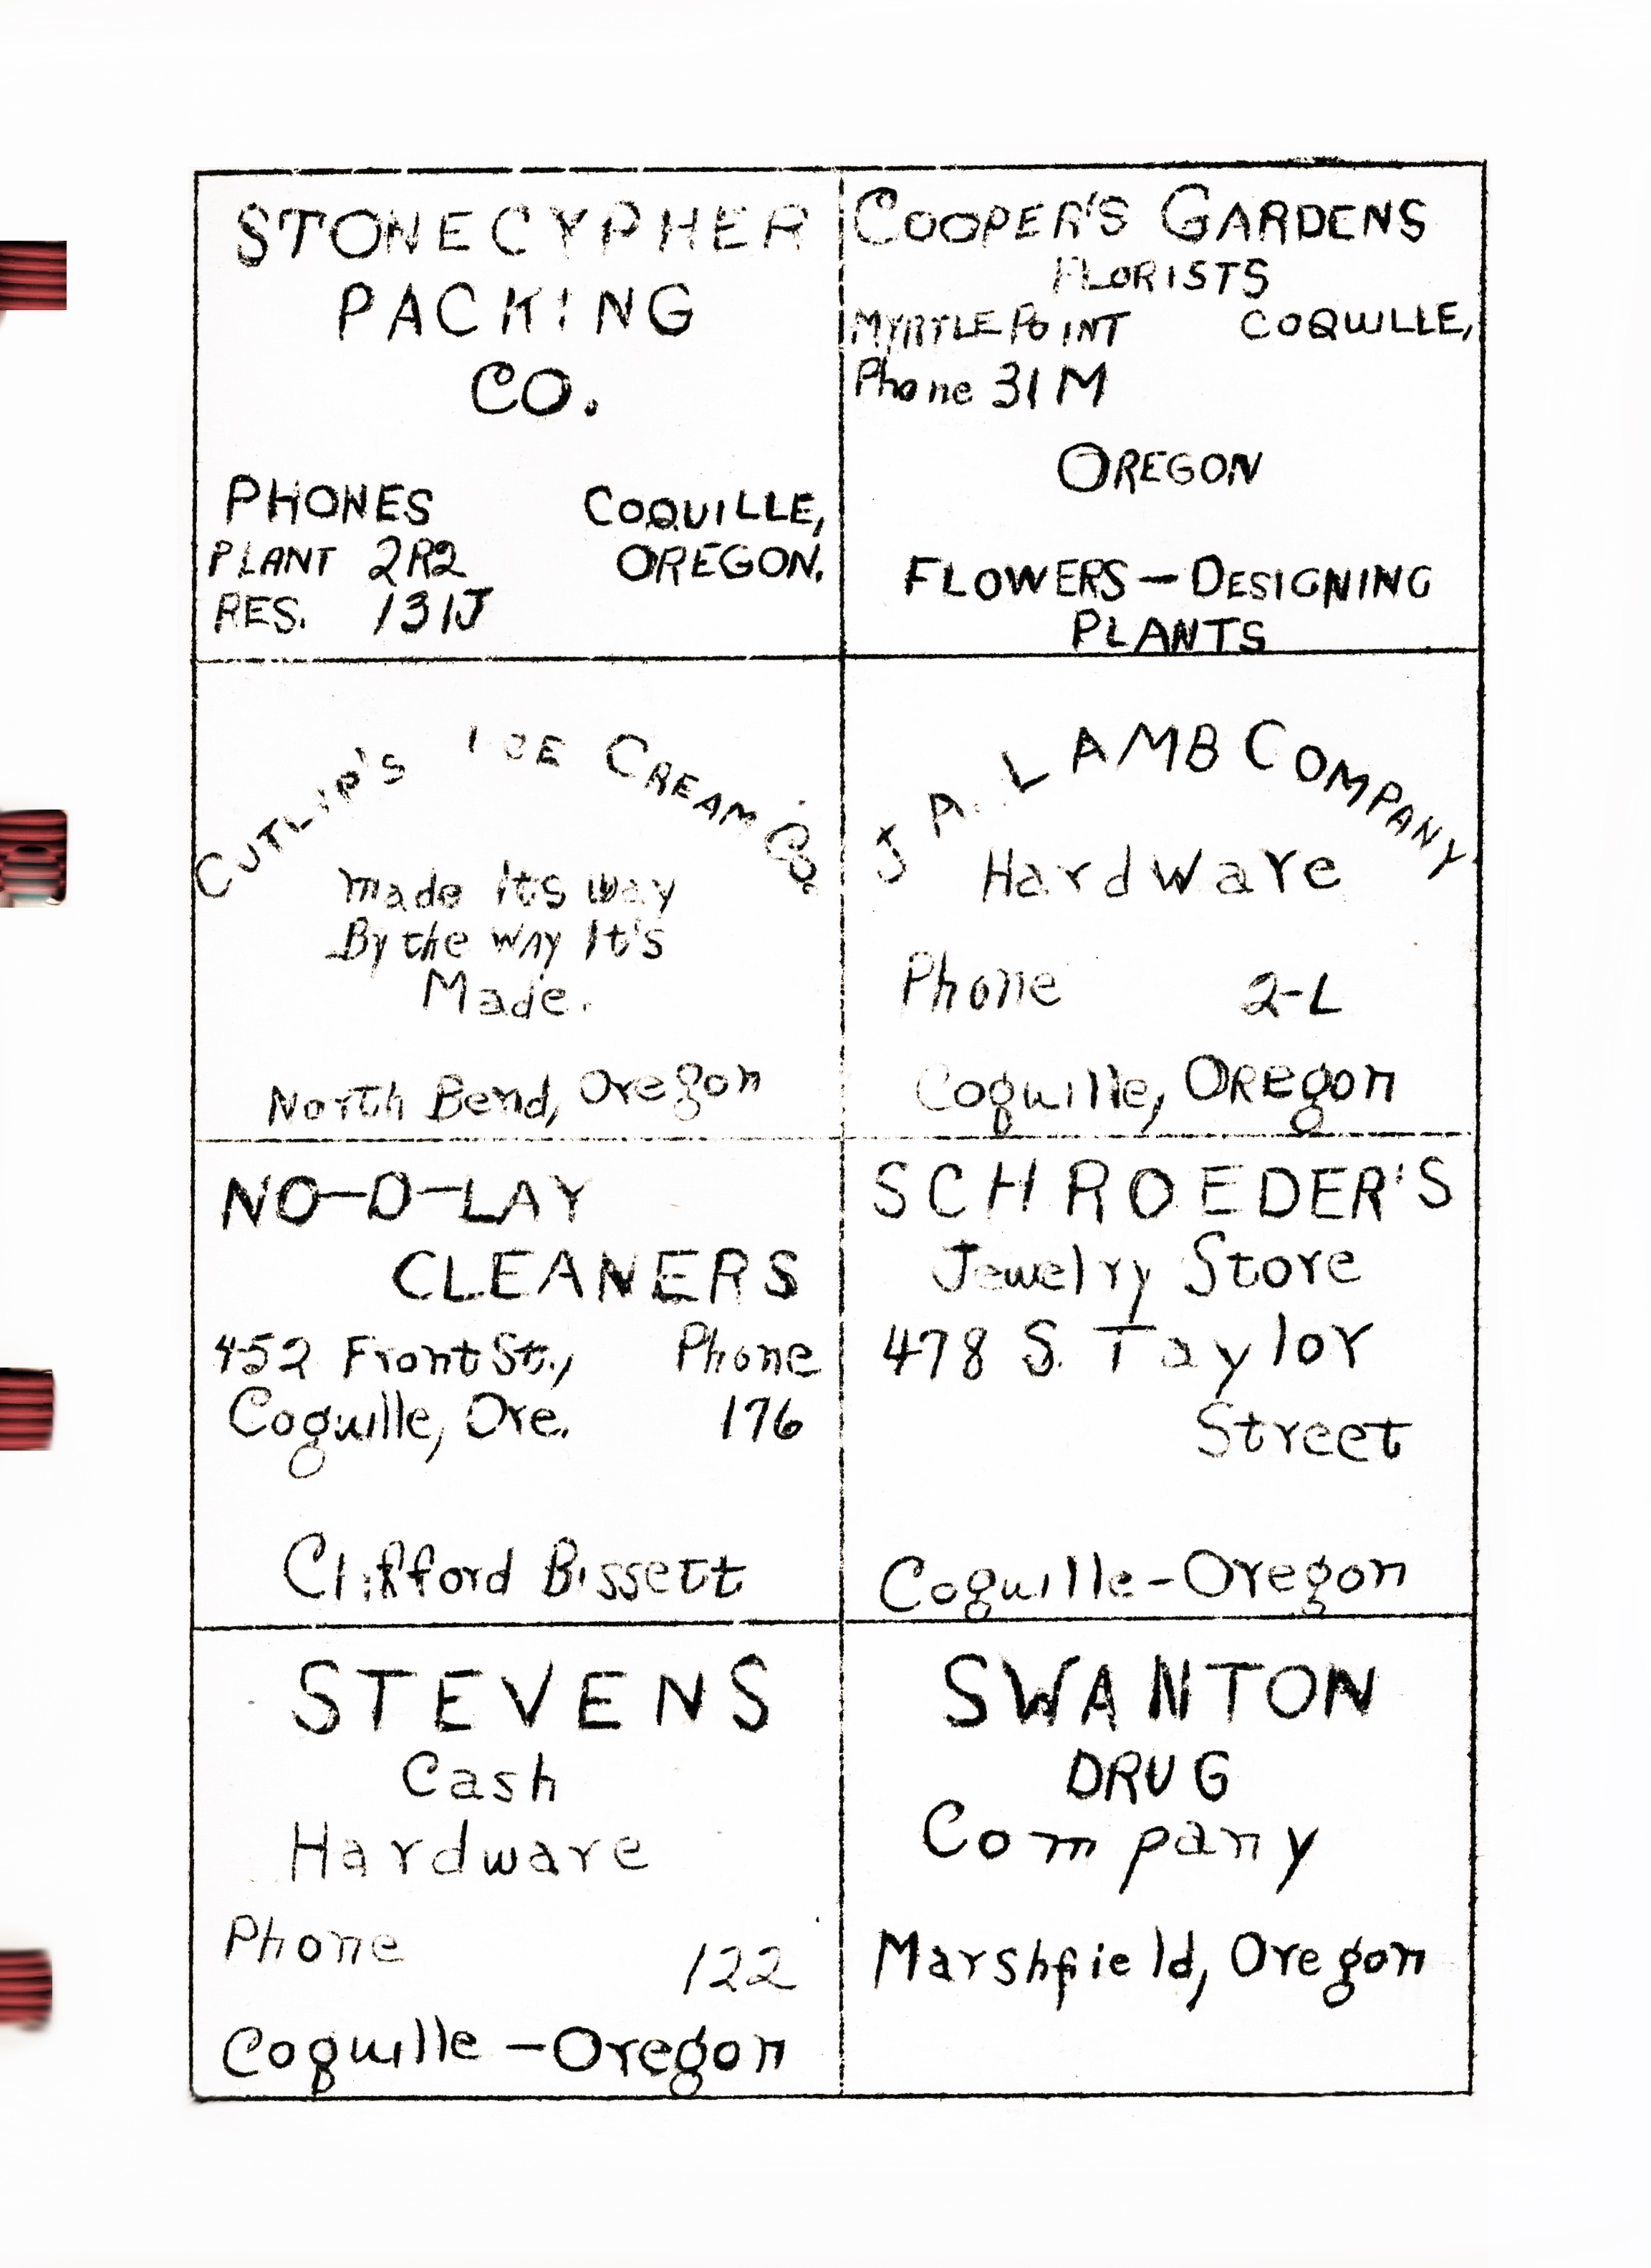 STONECYPHER
PACKING
CO.
PHONES COQUILLE,
PLANT 2R2 OREGON.
RES. 131J
COOPER'S GARDENS
FLORISTS
MYRTLE POINT COQUILLE,
Phone 31M
OREGON
FLOWERS — DESIGNING
PLANTS
CUTLIP'S ICE CREAM CO.
Made Its Way
By the Way It's
Made.
North Bend, Oregon
J. A. LAMB COMPANY
Hardware
Phone 2-L
Coquille, OREgon
NO-D-LAY
CLEANERS
452 Front St., Phone
Coquille, Ore. 176
Clifford Bissett
SCHROEDER'S
Jewelry Store
478 S. Taylor
Street
Coquille-Oregon
STEVENS
Cash
Hardware
Phone 122
Coquille-Oregon
SWANTON
DRUG
Company
Marshfield, Oregon